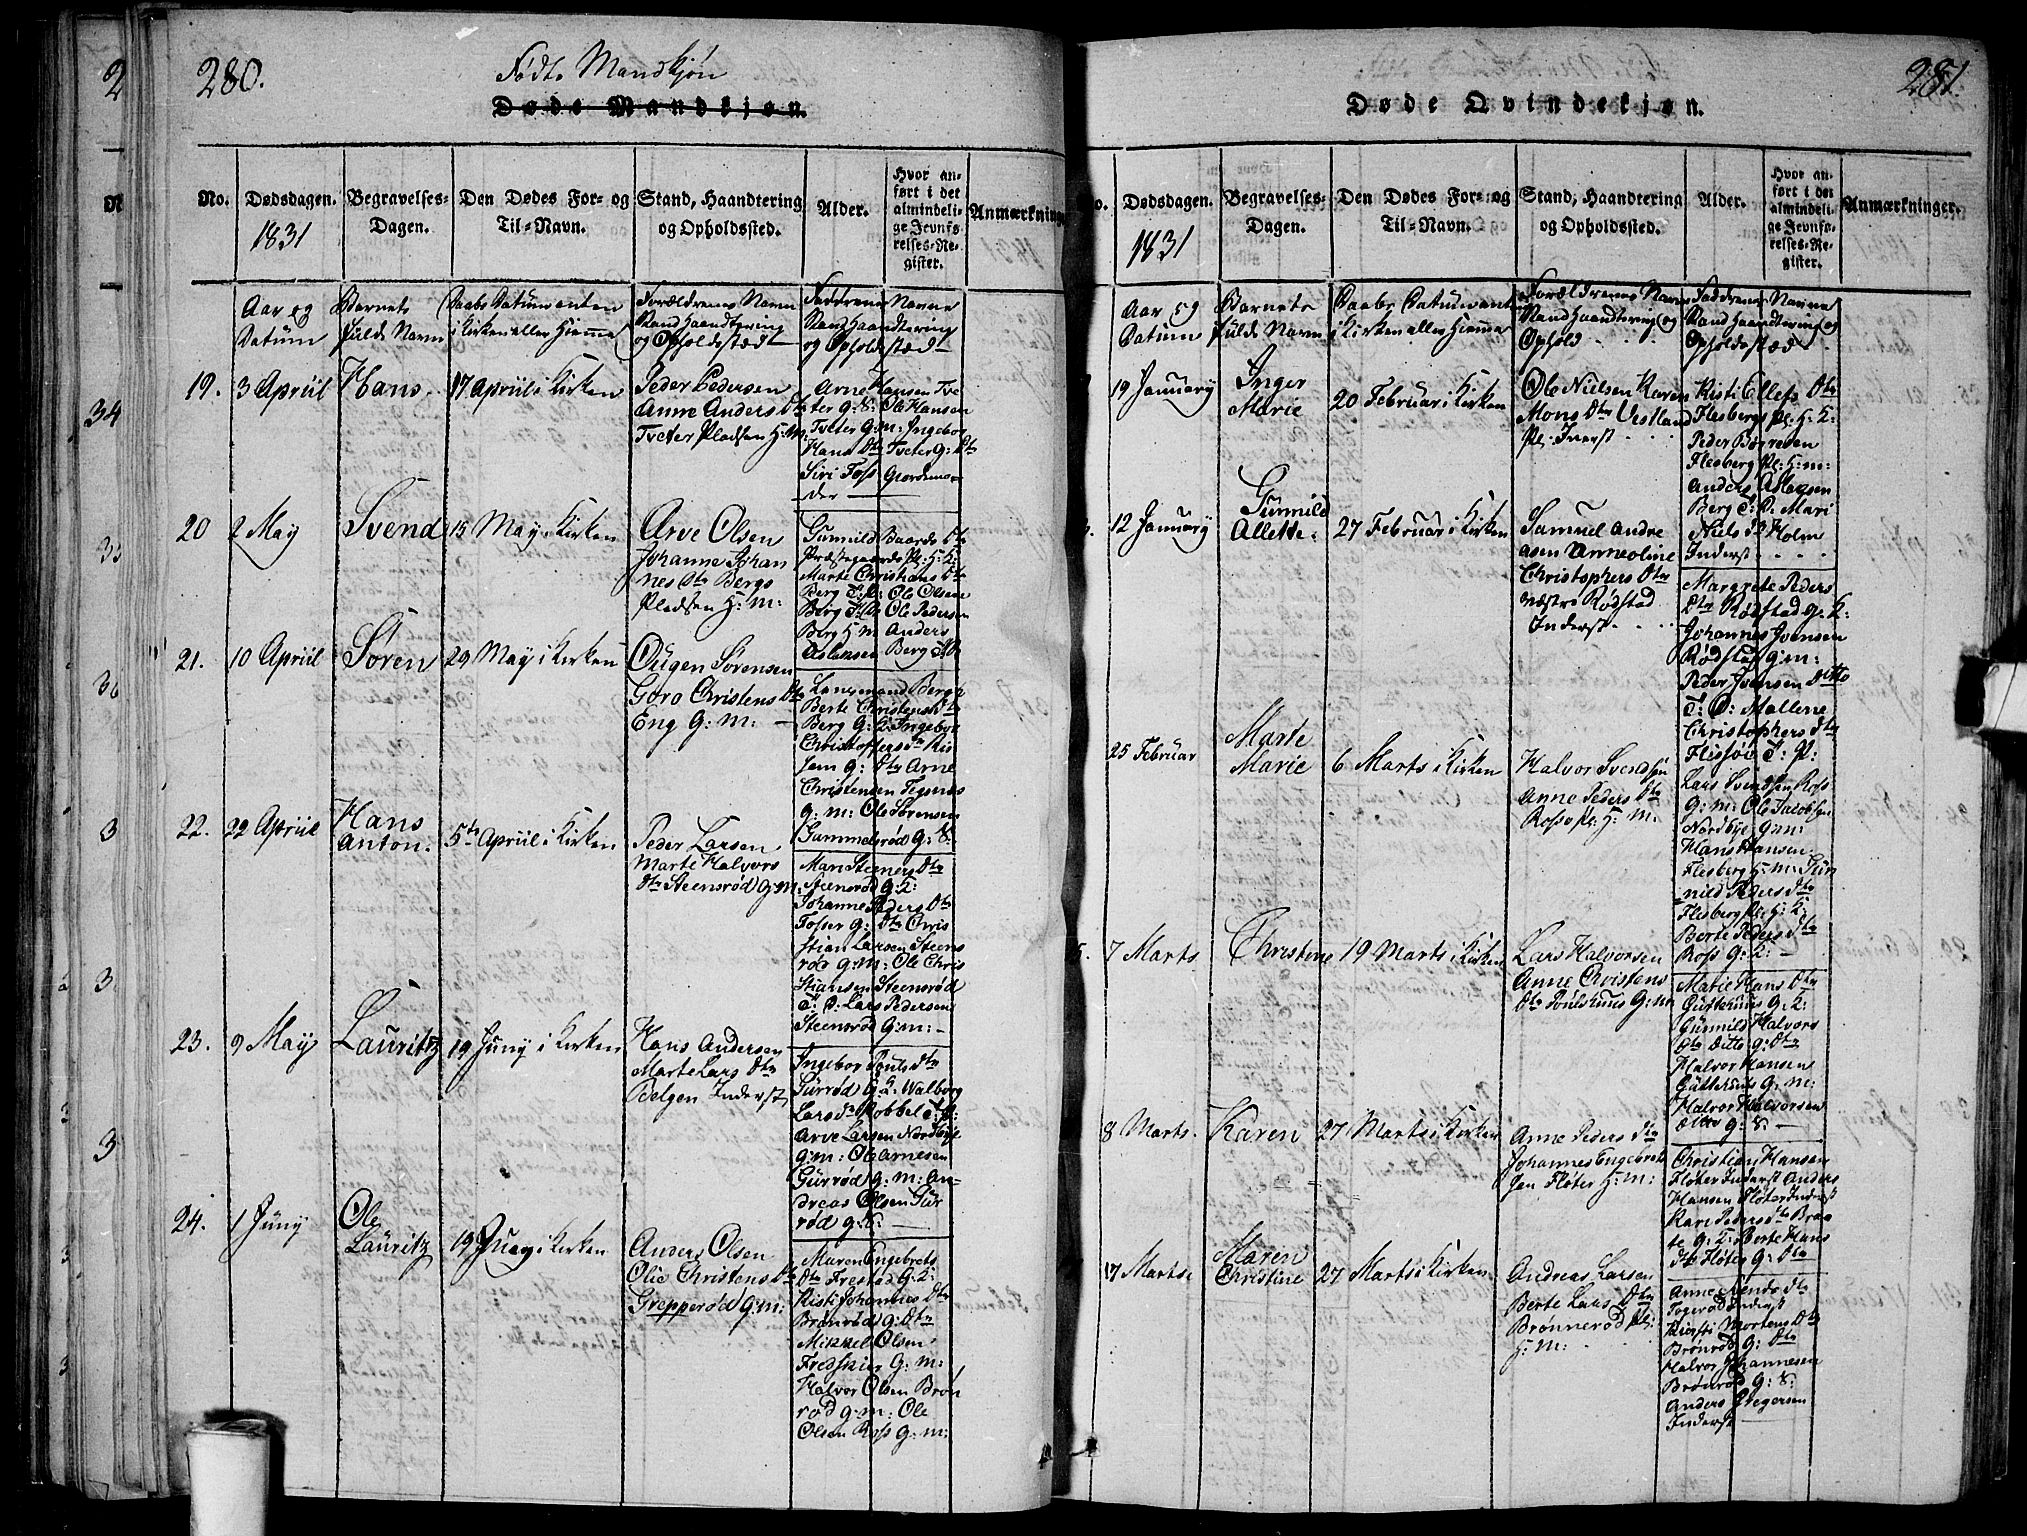 280.
Fødte Mandkjøn
Døde Mandkjøn.
No.
Dødsdagen.
1831
Begravelses-
Dagen.
Den Dødes For- og
Til-Navn.
Stand, Haandtering
og Opholdssted.
Alder.
Hvor an-
ført i det
almindeli-
ge Jevnfø-
relses-Re-
gister.
Anmærkninger
Aar og
Datum
Barnets
fulde Navn
Daabs Datum enten
i Kirken eller Hiemme
Forældrenes Navn
Stand Haandtering
og Opholdsstæd
Faddrenes Navne
Stand Haandtering
og Opholdsstæd
19. 3 Apriil Hans. 17 Apriil i Kirken
Peder Pedersen
Anne Anders Dtr
Tveter Pladsen H: M:
Arne Hansen Tve
ter G: K: Ole Hansen
Tveter G: M: Ingebor
Hans Dtr Tveter G: Dtr
Siri Foss Giordemo-
der
20 2 May Svend 15 May i Kirken
Arve Olsen
Johanne Johan
nes Dtr Bergs
Pladsen H: M:
Gunnild Baards Dtr
Præstegaards Pl: H: K:
Marte Christians Dtr
Berg T: P: Ole Olsen
Berg T: P: Ole Pedersen
Berg H: M: Anders
Aslaksen Berg
21. 10 Apriil Søren 29 May i Kirken
Eügen Sørensen
Goro Christens Dtr
Eng G: M:
Langemand Berg
Berte Christens Dtr
Berg G: K: Ingebor
Christoffers Dtr Ris
Jem G: Dtr Arne
Christensen Tegnæs
G: M: Ole Sørensen
Gammelsrød G: K:
22. 22 Apriil Hans
Anton. 5te Apriil i Kirken
Peder Larsen
Marte Halvors
Dtr Steensrød G: M:
Mari Steeners Dtr
Steensrød G: K:
Johanne Peders Dtr
Fosser G: Dtr Chris
tian Larsen Steens
rød G: M: Ole Chris
tiansen Steensrød
T: P: Lars Pedersen
Steensrød G: M:
23. 9 May Lauritz 19 Juny i Kirken
Hans Andersen
Marte Lars Dtr
Belgen Inderst
Ingebor Pouls Dtr
Gürrød G: K: Walborg
Lars Dtr Kobbel T: P:
Arve Larsen Nordbye
G: M: Ole Arnesen
Gürrød G: M: An-
dreas Olsen Gür
rød G: K:
24. 1 Juny Ole
Lauritz 19 Juny i Kirken
Anders Olsen
Olie Christens Dtr
Grepperød G: M:
Maren Engebrets
Dtr Frestad G: K:
Kisti Johannes Dtr
Brønrød G: Dtr
Mikkel Olsen
G: M:
Halvor Olsen Brøn
rød G: M: Ole
Olsen Ross G: M:
281.
Døde Qvindekjøn.
Dødsdagen.
1831
Begravelses-
Dagen.
Den Dødes For- og
Til-Navn.
Stand, Haandtering
og Opholdssted.
Alder.
Hvor an-
ført i det
almindeli-
ge Jevnfø-
relses-Re-
gister.
Anmærkninger.
Aar og
Datum
Barnets
fulde Navn
Daabs Datum enten
i Kirken eller Hiemme
Forældrenes Navn
Stand Haandtering og
Ophold
Faddrenes Navne
Stand Haandtering og
Opholdsstæd
19 January Inger
Marie 20 Februar i Kirken
Ole Nielsen Karen
Mons Dtr Vestland
Pl: Inderst
Kisti Ellefs Dtr
Flesberg Pl: H: K:
Peder Børresen
Flesberg Pl: H: M:
Anders Aslagsen
Berg T: P: Mari
Niels Dtr Holm
Inderst
12 January Gunnild
Allette. 27 Februar i Kirken
Samuel Andre
asen Anneoline
Christophers Dtr
Næstre Rødstad
Inderst
Margrete Peders
Dtr Rødstad G: K:
Johannes Joensen
Rødstad G: M:
Peder Joensen Ditto
T: P: Mallene
Christophers Dtr
Flissøe T: P:
25 Februar Marte
Marie 6 Marts i Kirken
Halvor Svendsen
Anne Peders Dtr
Rosse Pl: H: M:
Lars Svendsen Ross
G: M: Ole Jacobsen
Nordbye G: M:
Hans Hansen
Flesberg H: M: Gun
nild Peders Dtr
Flesberg Pl: H: K:
Berte Peders Dtr
Ross G: K:
7 Marts Christine 19 Marts i Kirken
Lars Halvorsen
Anne Christens
Dtr Poulshuus G: M:
Marie Hans Dtr
G: K:
Gunnild Halvors
Dtr Ditto G: Dtr
Halvor Hansen
G: M:
Halvor Halvorsen
Ditto G: K:
8 Marts. Karen 27 Marts i Kirken
Anne Peders Dtr
Johannes Engebret
sen Fløter H: M:
Christian Hansen
Fløter Inderst Anders
Hansen Fløter Inderst
Kari Peders Dtr Braa
te G: K: Berte Hans
Dtr Fløter G: Dtr
17 Marts Maren
Christine 27 Marts i Kirken
Andreas Larsen
Berte Lars Dtr
Brønnerød Pl:
H: M:
Anne Svends Dtr
Togerød Inderst
Kiersti Mortens Dtr
Brønrød G: Dtr
Halvor Johannesen
Brønrød G: K:
Anders Stegersen
Inderst